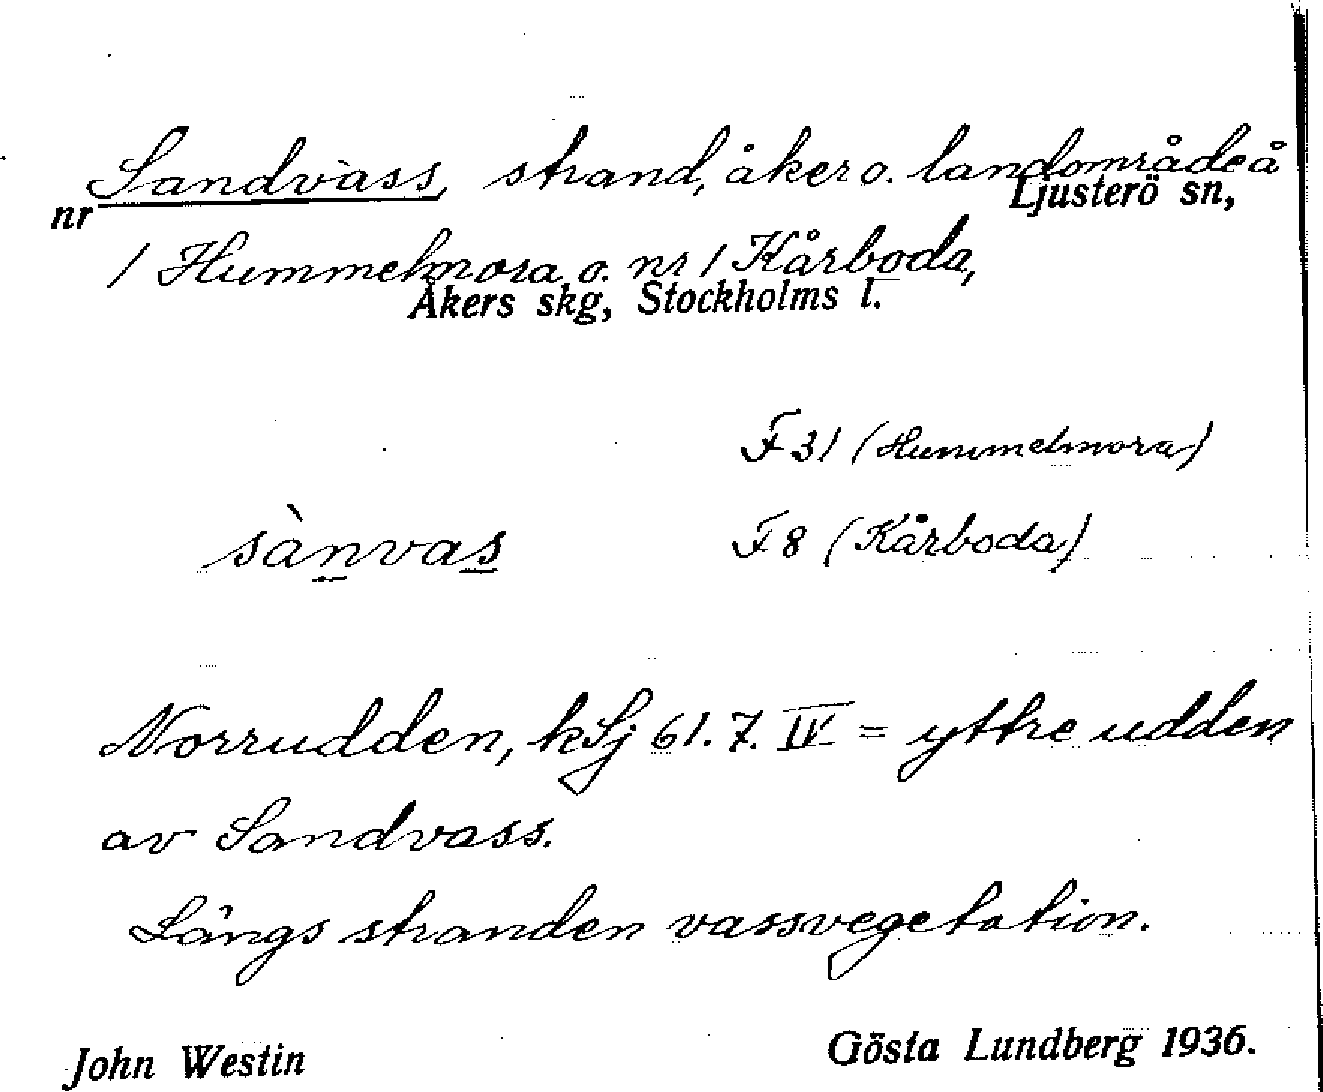 Sandvass, strand, åker o. landområde å
Ljusterö sn,
nr
1 Hummelmora o. nr 1 Kårboda,
Åkers skg, Stockholms l.
F 31 (Hummelmora)
sànvas
F 8 (Kårboda)
Norrudden, kSj 61.7. IV = yttre udden
av Sandvass.
Längs stranden vassvegetation.
John Westin
Gösta Lundberg 1936.